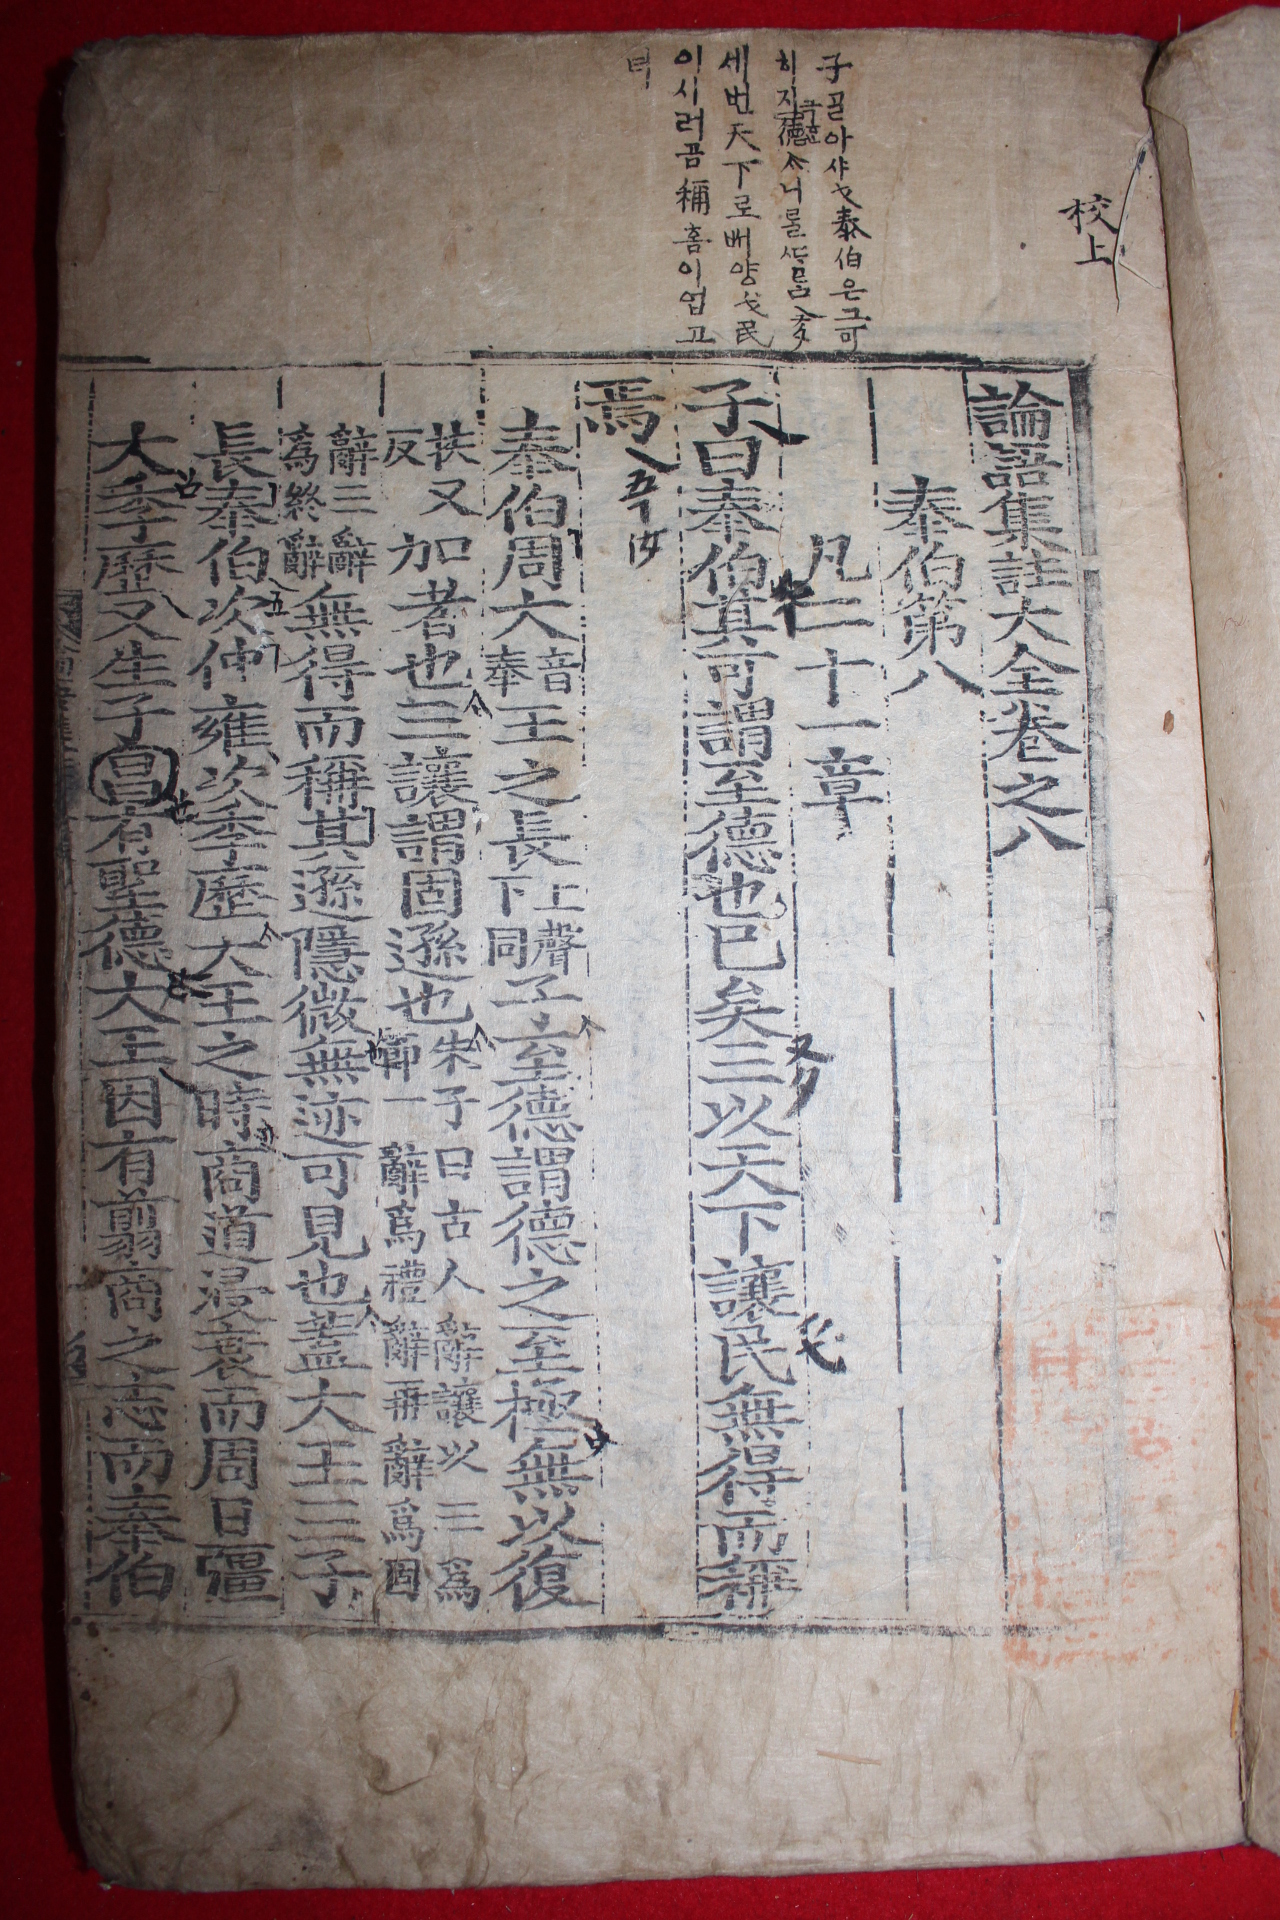 校上
子 골아샤ᄃᆡ 泰伯은 그 可
히 지극ᄒᆞᆫ 德
세번 天下로ᄡᅥ 양
이 시러곰 稱홈이 업고
녀
論語集註大全卷之八
泰伯第八
凡二十一章
子曰泰伯其可謂至德也已矣三以天下讓民無得而稱
焉
泰伯周大音泰王之長上聲下同子至德謂德之至極無以復
扶又反加者也三讓謂固遜也朱子曰古人辭讓以三爲節一辭爲禮辭再辭爲固
辭三辭爲終辭無得而稱其遜隱微無迹可見也蓋大王三子
長泰伯次仲雍次季歷大王之時商道浸衰而周日彊
大季歷又生子昌有聖德大王因有翦商之志而泰伯